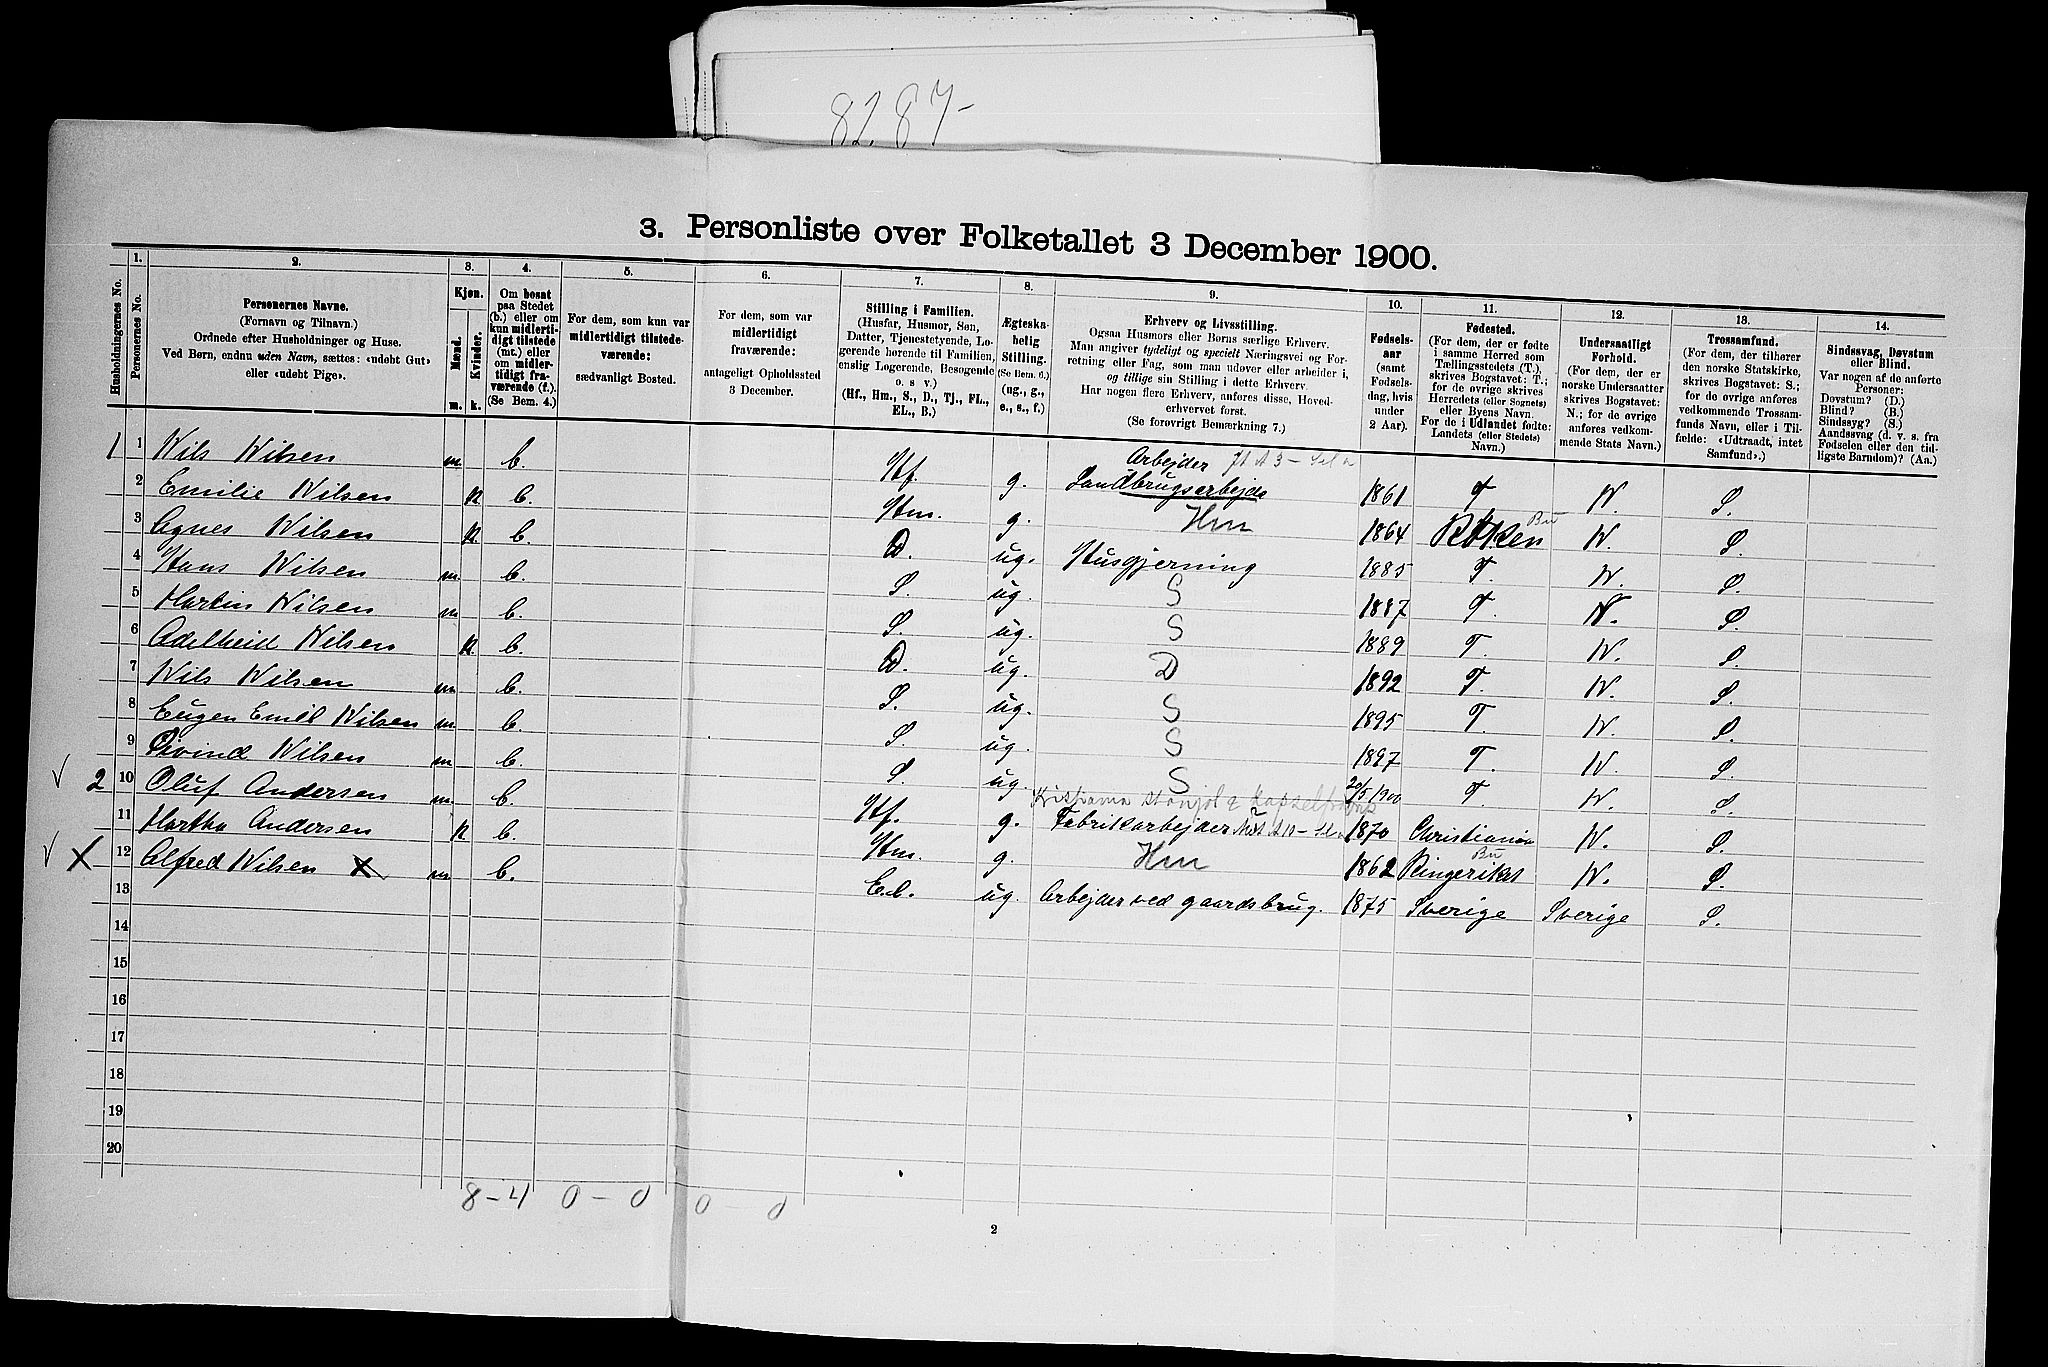 8287-
3. Personliste over Folketallet 3 December 1900.
Husholdningernes No.
1.
Personernes No.
2.
Personernes Navne.
(Fornavn og Tilnavn.)
Ordnede efter Husholdninger og Huse.
Ved Børn, endnu uden Navn, sættes: «udøbt Gut»
eller «udøbt Pige».
3.
Kjøn.
Mænd.
Kvinder.
m.
k.
4.
Om bosat
paa Stedet
(b.) eller om
kun midlerti-
digt tilstede
(mt.) eller
om midler-
tidigt fra-
værende (f.).
(Se Bem. 4.)
5.
For dem, som kun var
midlertidigt tilstede-
værende:
sædvanligt Bosted.
6.
For dem, som var
midlertidigt
fraværende:
antageligt Opholdssted
3 December.
7.
Stilling i Familien.
(Husfar, Husmor, Søn,
Datter, Tjenestetyende, Lo-
gerende hørende til Familien,
enslig Logerende, Besøgende
o. s v.)
(Hf., Hm., S., D., Tj., FL.,
EL., B.)
8.
Ægteska-
belig
Stilling.
(Se Bem. 6.)
(ug., g.,
e., s., f.)
9.
Erhverv og Livsstilling.
Ogsaa Husmors eller Børns særlige Erhverv.
Man angiver tydeligt og specielt Næringsvei og For-
retning eller Fag, som man udøver eller arbeider i,
og tillige sin Stilling i dette Erhverv.
Har nogen flere Erhverv, anføres disse, Hoved-
erhvervet først.
(Se forøvrigt Bemærkning 7.)
10.
Fødsels-
aar
(samt
Fødsels-
dag, hvis
under
2 Aar).
11.
Fødested.
(For dem, der er fødte
i samme Herred som
Tællingsstedets (T.),
skrives Bogstavet: T.;
for de øvrige skrives
Herredets (eller Sognets)
eller Byens Navn.
For de i Udlandet fødte:
Landets (eller Stedets)
Navn.)
12.
Undersaatligt
Forhold.
(For dem, der er
norske Undersaatter
skrives Bogstavet:
N.; for de øvrige
anføres vedkom-
mende Stats Navn.)
13.
Trossamfund.
(For dem, der tilhører
den norske Statskirke,
skrives Bogstavet: S.;
for de øvrige anføres
vedkommende Trossam-
funds Navn, eller i Til-
fælde: «Udtraadt, intet
Samfund».)
14.
Sindssvag, Døvstum
eller Blind.
Var nogen af de anførte
Personer:
Døvstum? (D.)
Blind? (B.)
Sindssyg? (S.)
Aandssvag (d. v. s. fra
Fødselen eller den tid-
ligste Barndom)? (Aa.)
1 1 Nils Nilsen m. b. Hf. g. Arbejder Landbrugsarbejde 1861 T. N. S.
2 Emilie Nilsen k. b. Hm. g. Hm 1864 Røken Bu N. S.
3 Agnes Nilsen k. b. D. ug. Husgjerning 1885 T. N. S.
4 Hans Nilsen m. b. S. ug. S 1887 T. N. S.
5 Martin Nilsen m. b. S. ug. S 1889 T. N. S.
6 Adelheid Nilsen k. b. D. ug. D 1892 T. N. S.
7 Nils Nilsen m. b. S. ug. S 1895 T. N. S.
8 Eugen Emil Nilsen m. b. S. ug. S 1897 T. N. S.
9 Eivind Nilsen m. b. S. ug. S 20/5 1900 T. N. S.
√ 2 10 Oluf Andersen m. b. Hf. g. Fabrikarbejder 1870 Christiania N. S.
11 Martha Andersen k. b. Hm. g. Hm 1862 Ringerike Bu N. S.
√ X 12 Alfred Nilsen X m. b. E.l. ug. Arbejder ved gaardsbrug. 1875 Sverige Sverige S.
13
14
15
16
17
18
19
20
8-4 0-0 0-0
2